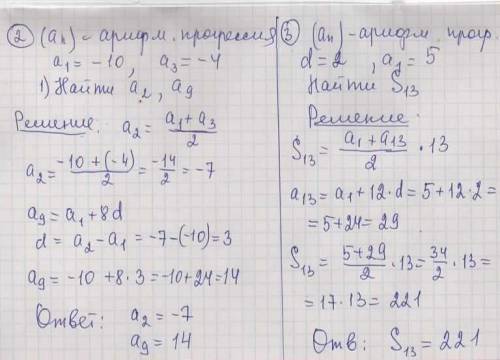 ② (aₙ) - арифм. прогрессия
a₁ = -10, a₃ = -4
1) Найти a₂, a₉
Решение: a₂ = (a₁ + a₃)/2
a₂ = (-10 + (-4))/2 = -14/2 = -7
a₉ = a₁ + 8d
d = a₂ - a₁ = -7 - (-10) = 3
a₉ = -10 + 8·3 = -10 + 24 = 14
Ответ: a₂ = -7
a₉ = 14
③ (aₙ) - арифм. прогр.
d = 2, a₁ = 5
Найти S₁₃
Решение:
S₁₃ = (a₁ + a₁₃)/2 · 13
a₁₃ = a₁ + 12·d = 5 + 12·2 =
= 5 + 24 = 29
S₁₃ = (5 + 29)/2 · 13 = 34/2 · 13 =
= 17·13 = 221
Отв: S₁₃ = 221